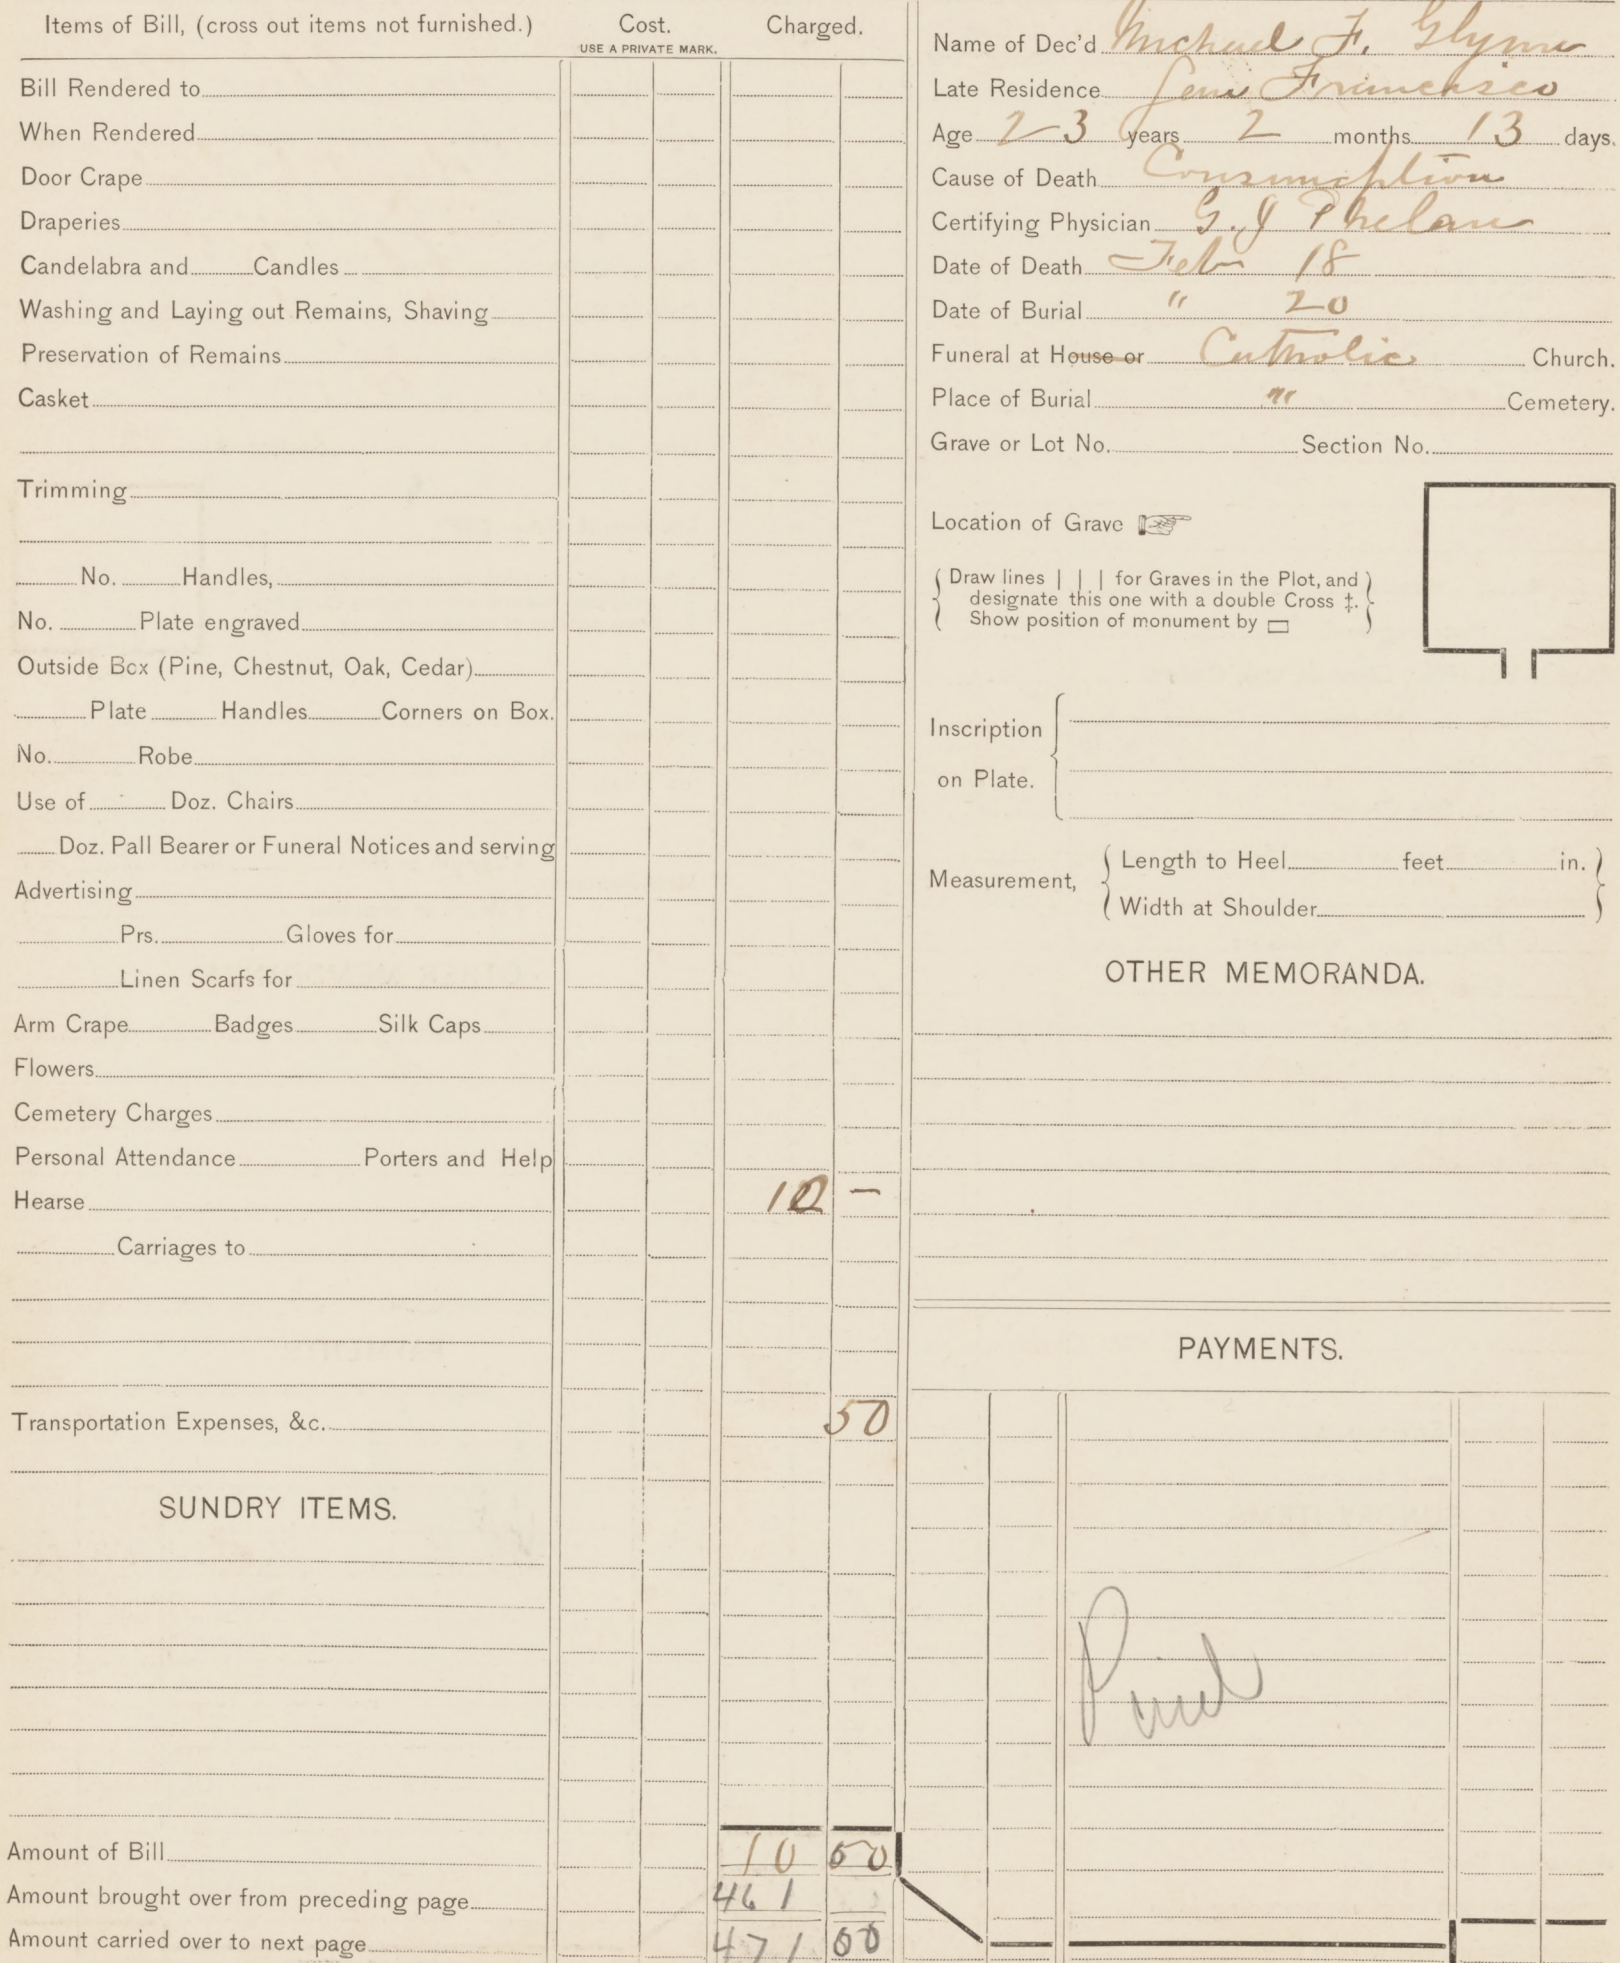 Items of Bill, (cross out items not furnished.) Cost. Charged.
USE A PRIVATE MARK.
Bill Rendered to
When Rendered
Door Crape
Draperies
Candelabra and Candles
Washing and Laying out Remains, Shaving
Preservation of Remains
Casket
Trimming
No. Handles,
No. Plate engraved
Outside Box (Pine, Chestnut, Oak, Cedar)
Plate Handles Corners on Box.
No. Robe
Use of Doz. Chairs
Doz. Pall Bearer or Funeral Notices and serving
Advertising
Prs. Gloves for
Linen Scarfs for
Arm Crape Badges Silk Caps
Flowers
Cemetery Charges
Personal Attendance Porters and Help
Hearse 10 –
Carriages to
Transportation Expenses, &c. 50
SUNDRY ITEMS.
Amount of Bill 10 50
Amount brought over from preceding page 461
Amount carried over to next page 471
Name of Dec'd Michael F. Glynn
Late Residence San Francisco
Age 23 years 2 months 13 days.
Cause of Death Consumption
Certifying Physician G. J Phelan
Date of Death Feb 18
Date of Burial " 20
Funeral at House or Catholic Church.
Place of Burial " Cemetery.
Grave or Lot No. Section No.
Location of Grave
Draw lines | | | for Graves in the Plot, and
designate this one with a double Cross ‡.
Show position of monument by
Inscription
on Plate.
Measurement,
Length to Heel feet in.
Width at Shoulder
OTHER MEMORANDA.
PAYMENTS.
Paid